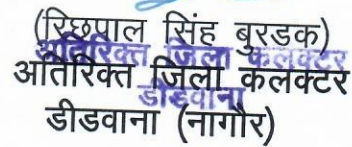 (रिछपाल सिंह बुरडक)
अतिरिक्त जिला कलक्टर
अतिरिक्त जिला कलक्टर
डीडवाना
डीडवाना (नागौर)